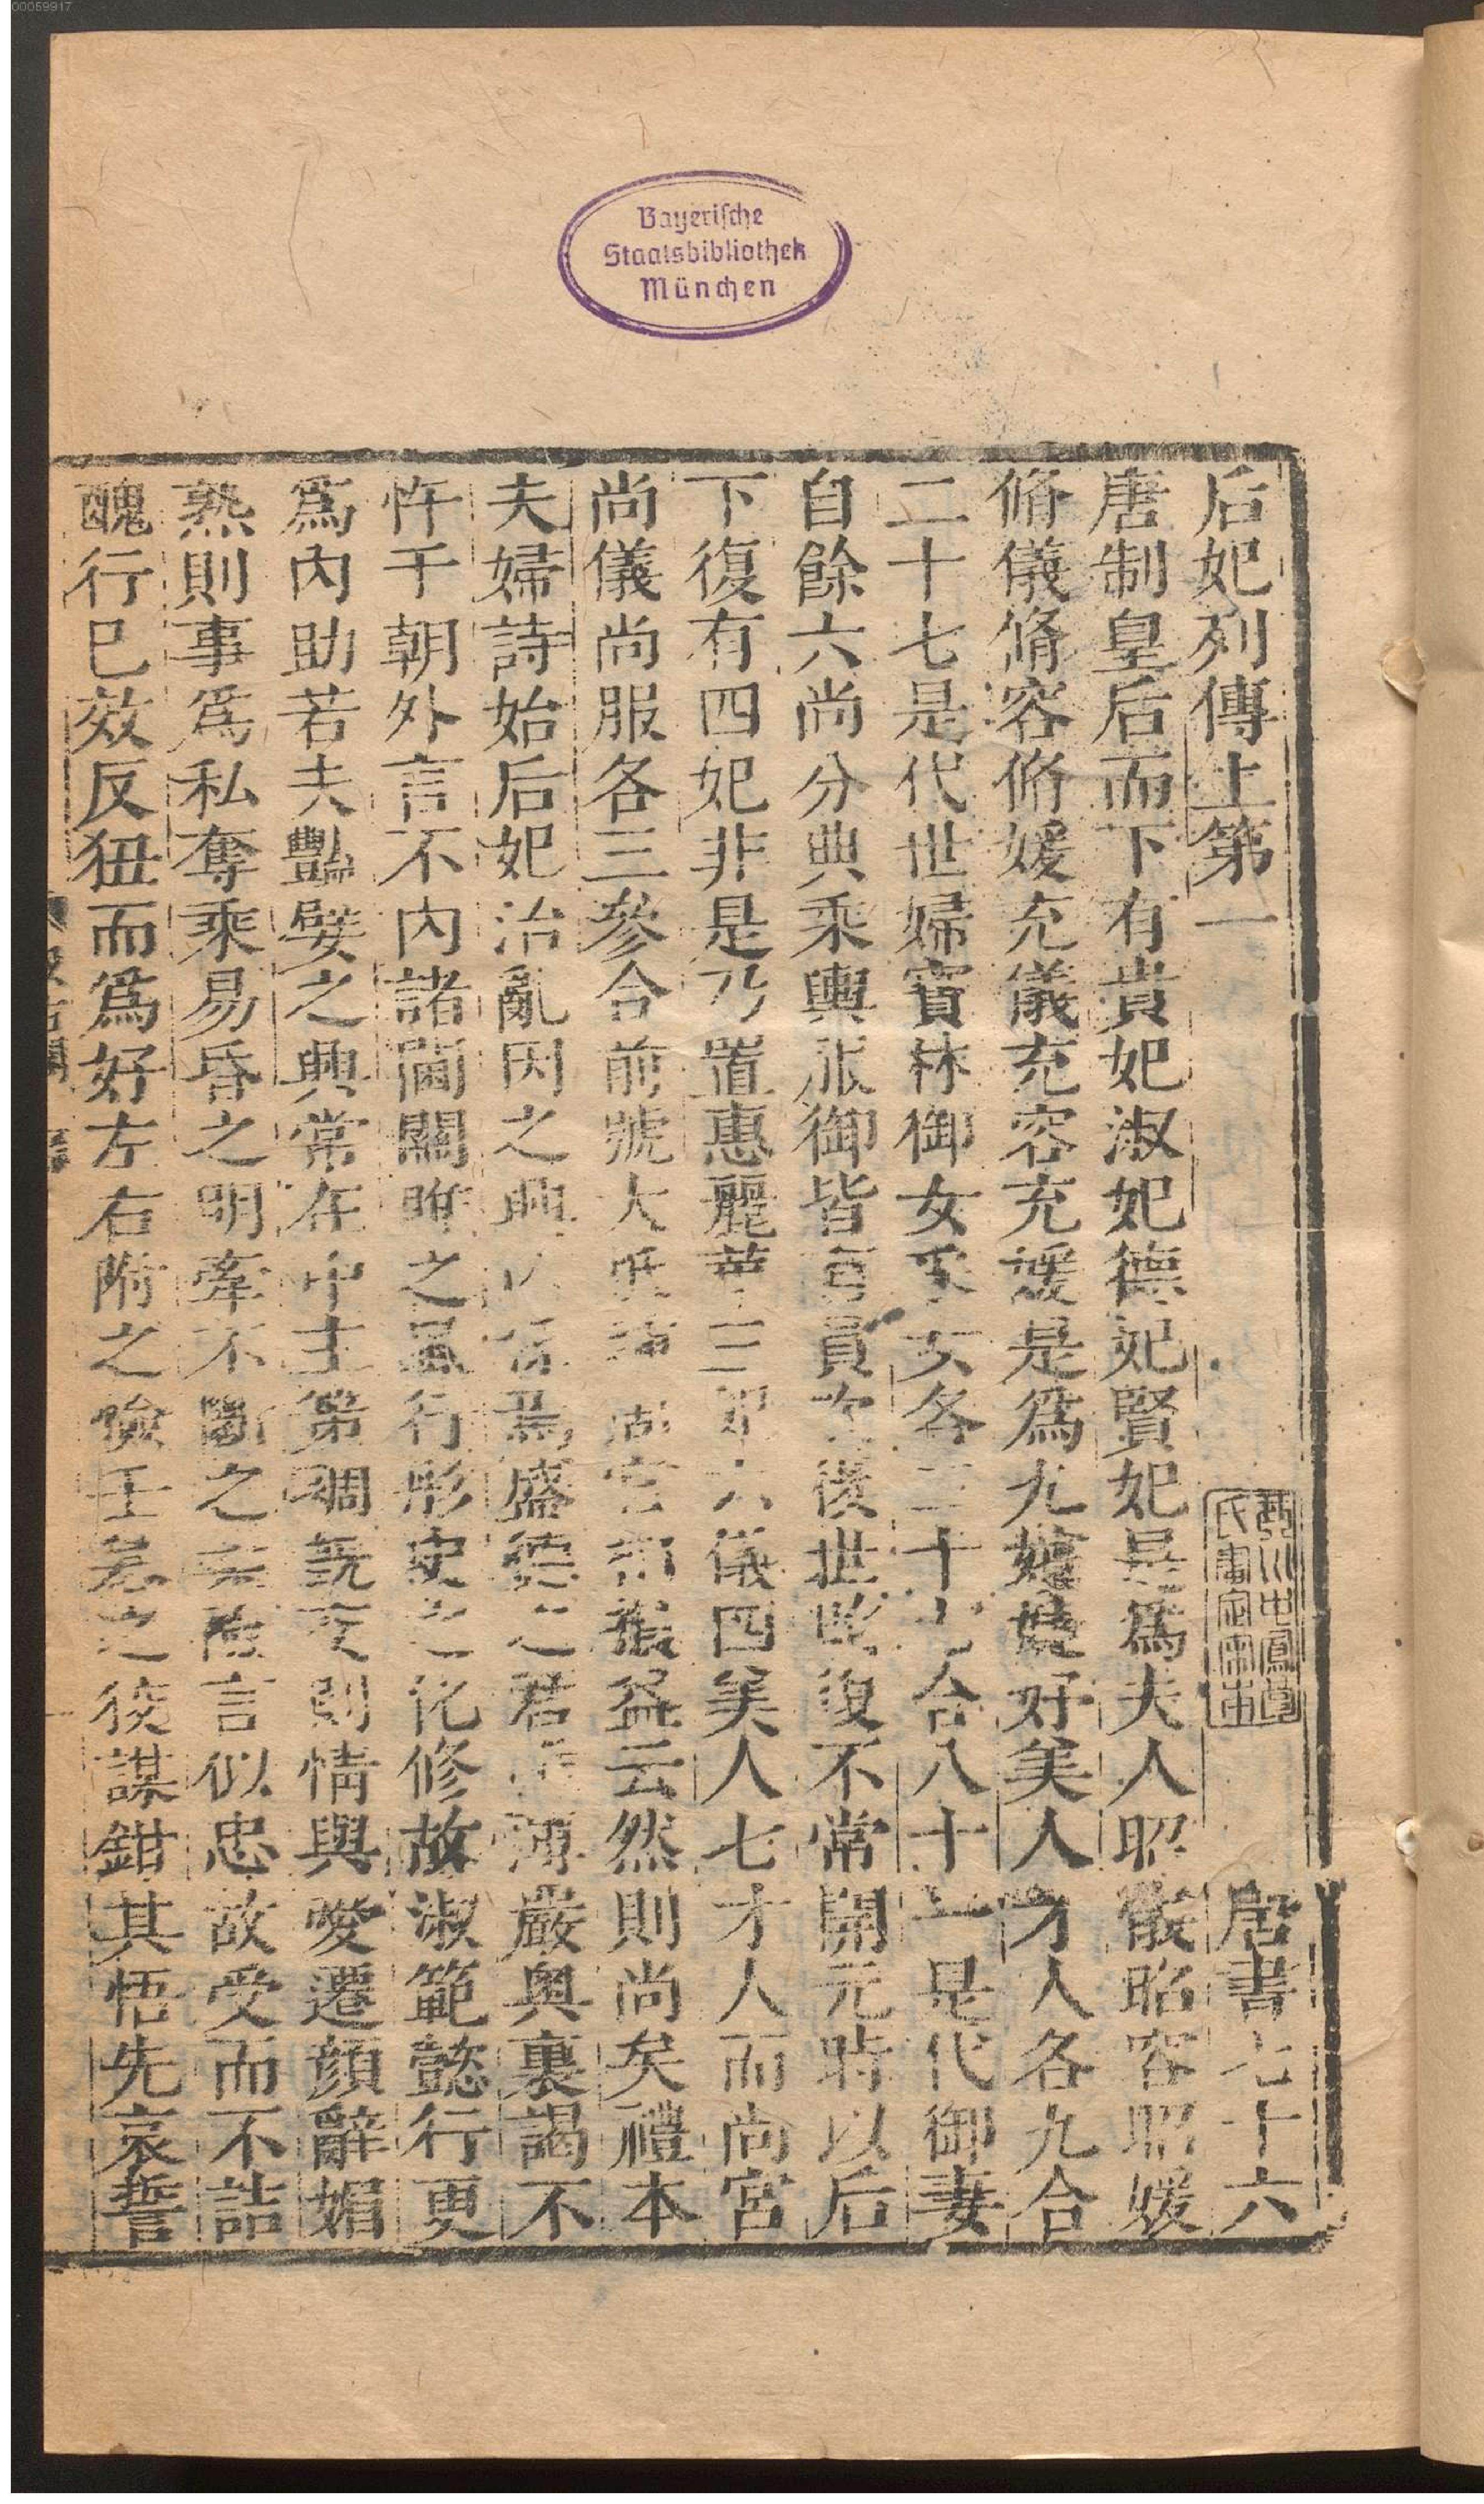 00059917
Bayerische
Staatsbibliothek
München
后妃列傳上第一 唐書七十六
唐制皇后而下有貴妃淑妃德妃賢妃是為夫人昭儀昭容昭媛
脩儀脩容脩媛充儀充容充媛是為九嬪婕妤美人才人各九合
二十七是代世婦寶林御女采女各二十七合八十一是代御妻
自餘六尚分典乘輿服御皆有員次後世改復不常開元時以后
下復有四妃非是乃置惠麗華三妃六儀四美人七才人而尚宮
尚儀尚服各三參合前號大抵踵周官相損益云然則尚矣禮本
夫婦詩始后妃治亂因之興亡係焉盛德之君帷薄嚴奧裏謁不
忤于朝外言不內諸閫關雎之風行彤史之化修故淑範懿行更
為內助若夫艷嬖之興常在中主第裯既交則情與愛遷顏辭媚
熟則事為私奪乘易昏之明牽不斷之柔險言似忠故受而不詰
醜行已效反狃而為好左右附之憸壬惎之狡謀鉗其悟先哀誓